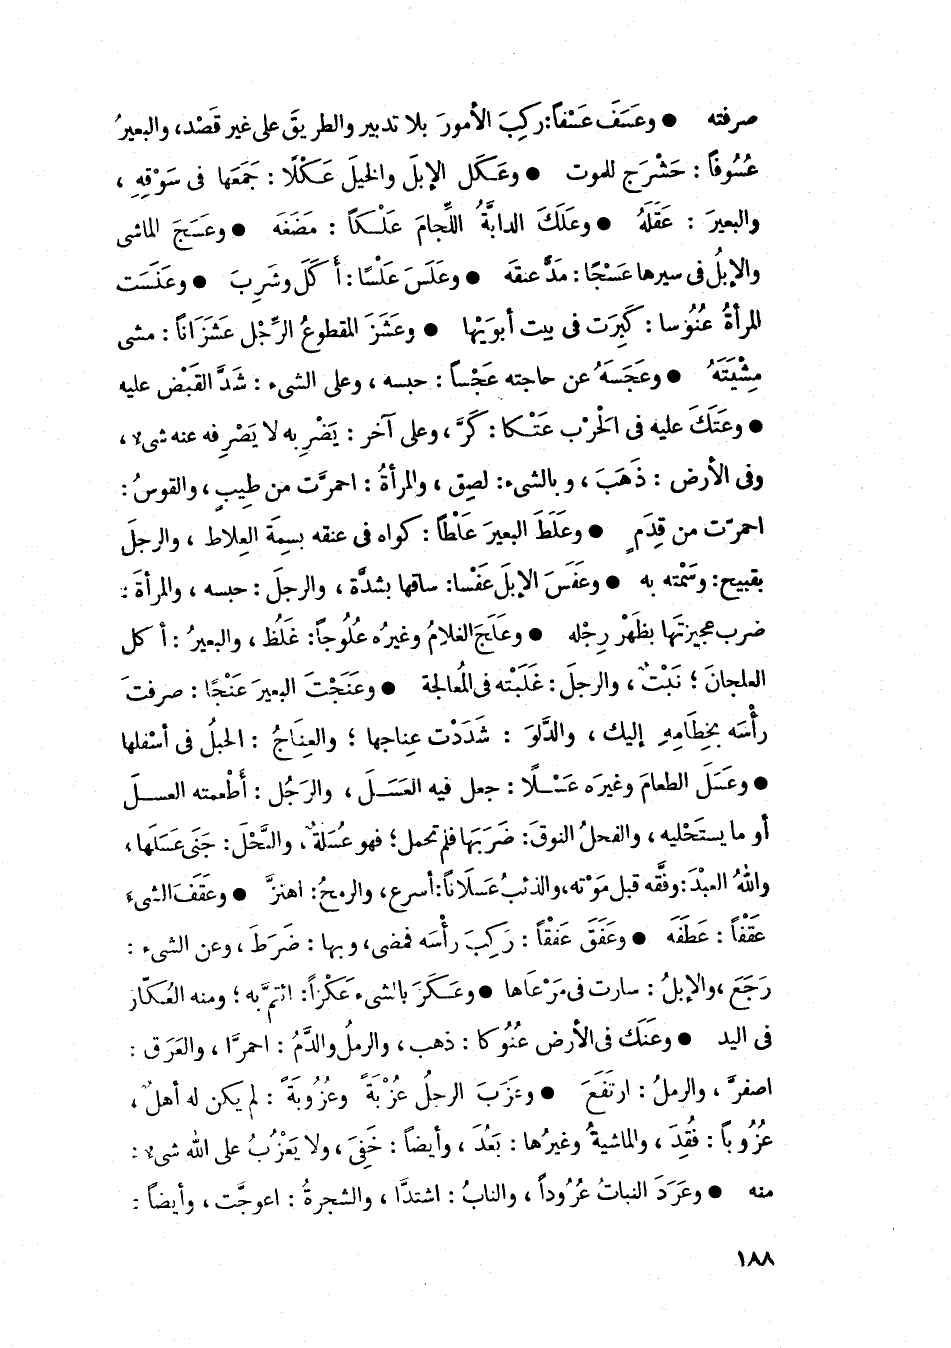 صرفته ● وعَسَفَ عَسْفاً: ركِبَ الأمورَ بلا تدبير والطريقَ على غير قَصْد، والبعيرُ
عُسُوفاً : حَشْرَج للموت ● وعَكَل الإبلَ والخيلَ عَكْلًا : جَمَعَها فى سَوْقِهِ ،
والبعيرَ : عَقَلَهُ ● وعَلَكَ الدابَّةُ اللِّجامَ عَلْكاً : مضَغَه ● وعَسَجَ الماشى
والإبلُ فى سيرها عَسْجًا : مَدَّ عنقَه ● وعَلَسَ عَلْسًا : أَكَلَ وشَرِبَ ● وعَنَسَت
المرأةُ عُنُوسا : كَبِرَت فى بيت أبوَيْها ● وعَشَزَ المقطوعُ الرِّجْل عَشَزَاناً : مشى
مِشْيَتَهُ ● وعَجَسَهُ عن حاجته عَجْساً : حبسه ، وعلى الشىء : شَدَّ القَبْض عليه
● وعَتَكَ عليه فى الْحَرْب عَتْكا : كَرَّ ، وعلى آخر : يَضْرِبه لا يَصْرِفه عنه شىء ،
وفى الأرض : ذَهَبَ ، وبالشىء : لصِق ، والمرأةُ : احمرَّت من طِيبٍ ، والقوسُ :
احمرّت من قِدَمٍ ● وعَلَطَ البعيرَ عَلْطاً : كواه فى عنقه بسِمَة العِلاط ، والرجلَ
بقبيح : وسَمْته به ● وعَفَسَ الإبلَ عَفْسا : ساقها بشدَّة ، والرجلَ : حبسه ، والمرأةَ :
ضرب عجيزتَها بظَهْر رِجْله ● وعَلَجَ الغلامُ وغيرُه عُلُوجاً : غَلُظ ، والبعيرُ : أكل
العلجانَ ؛ نَبْتٌ ، والرجلَ : غَلَبْته فى المُعالجة ● وعَنَجْتَ البعيرَ عَنْجًا : صرفتَ
رأْسَه بِخِطَامِهِ إليك ، والدَّلوَ : شَدَدْت عِناجها ؛ والعِنَاجُ : الحبلُ فى أسْفلها
● وعَسَلَ الطعامَ وغيرَه عَسْلًا : جعل فيه العَسَلَ ، والرَجُل : أَطْعمته العسلَ
أو ما يستَحْليه ، والفحلُ النوقَ : ضَرَبَها فلم تحمل ؛ فهو عُسَلةٌ ، والنَّحْلَ : جَنَى عَسَلَها ،
واللهُ العبْدَ : وفَّقه قبل مَوْته، والذئبُ عَسَلَاناً : أسرع ، والرمحُ : اهتزَّ ● وعَقَفَ الشىءَ
عَقْفاً : عَطَفَه ● وعَفَقَ عَفقْاً : رَكِبَ رأْسَه فمضى، وبها : ضَرَطَ ، وعن الشىء :
رَجَعَ ، والإبلُ : سارت فى مَرْعَاها ● وعَكَزَ بالشىء عَكْزاً : ائتمَّ به ؛ ومنه العُكّاز
فى اليد ● وعَنَك فى الأرض عُنُوكا : ذهب ، والرملُ والدَّمُ : احمرَّا ، والعَرَق :
اصفرَّ ، والرملُ : ارتَفَعَ ● وعَزَبَ الرجلُ عُزْبَةً وعُزُوبَةً : لم يكن له أهلٌ ،
عُزُوباً : فُقِدَ ، والماشيةُ وغيرُها : بَعُدَ ، وأيضاً : خَفِىَ ، ولا يَعْزُبُ على الله شىء :
منه ● وعَرَدَ النباتُ عُرُوداً ، والنابُ : اشتدَّا ، والشجرةُ : اعوجَّت ، وأيضاً :
١٨٨